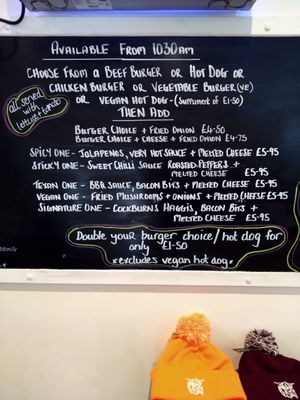 AVAILABLE FROM 1030AM
CHOOSE FROM A BEEF BURGER OR HOT DOG OR
CHICKEN BURGER OR VEGETABLE BURGER (VE)
OR VEGAN HOT DOG - (Supplement of £1·50)
all served
with
lettuce + tomato
THEN ADD
BURGER CHOICE + FRIED ONION £4·50
BURGER CHOICE + CHEESE + FRIED ONION £4·75
SPICY ONE - JALAPENOS, VERY HOT SAUCE + MELTED CHEESE £5·95
STICKY ONE - SWEET CHILLI SAUCE ROASTED PEPPERS +
MELTED CHEESE £5·95
TEXAN ONE - BBQ SAUCE, BACON BITS + MELTED CHEESE £5·95
VEGAN ONE - FRIED MUSHROOMS + ONIONS + MELTED CHEESE £5·95
SIGNATURE ONE - COCKBURNS HAGGIS, BACON BITS +
MELTED CHEESE £5·95
Double your burger choice / hot dog for
only £1·50
*excludes vegan hot dog*